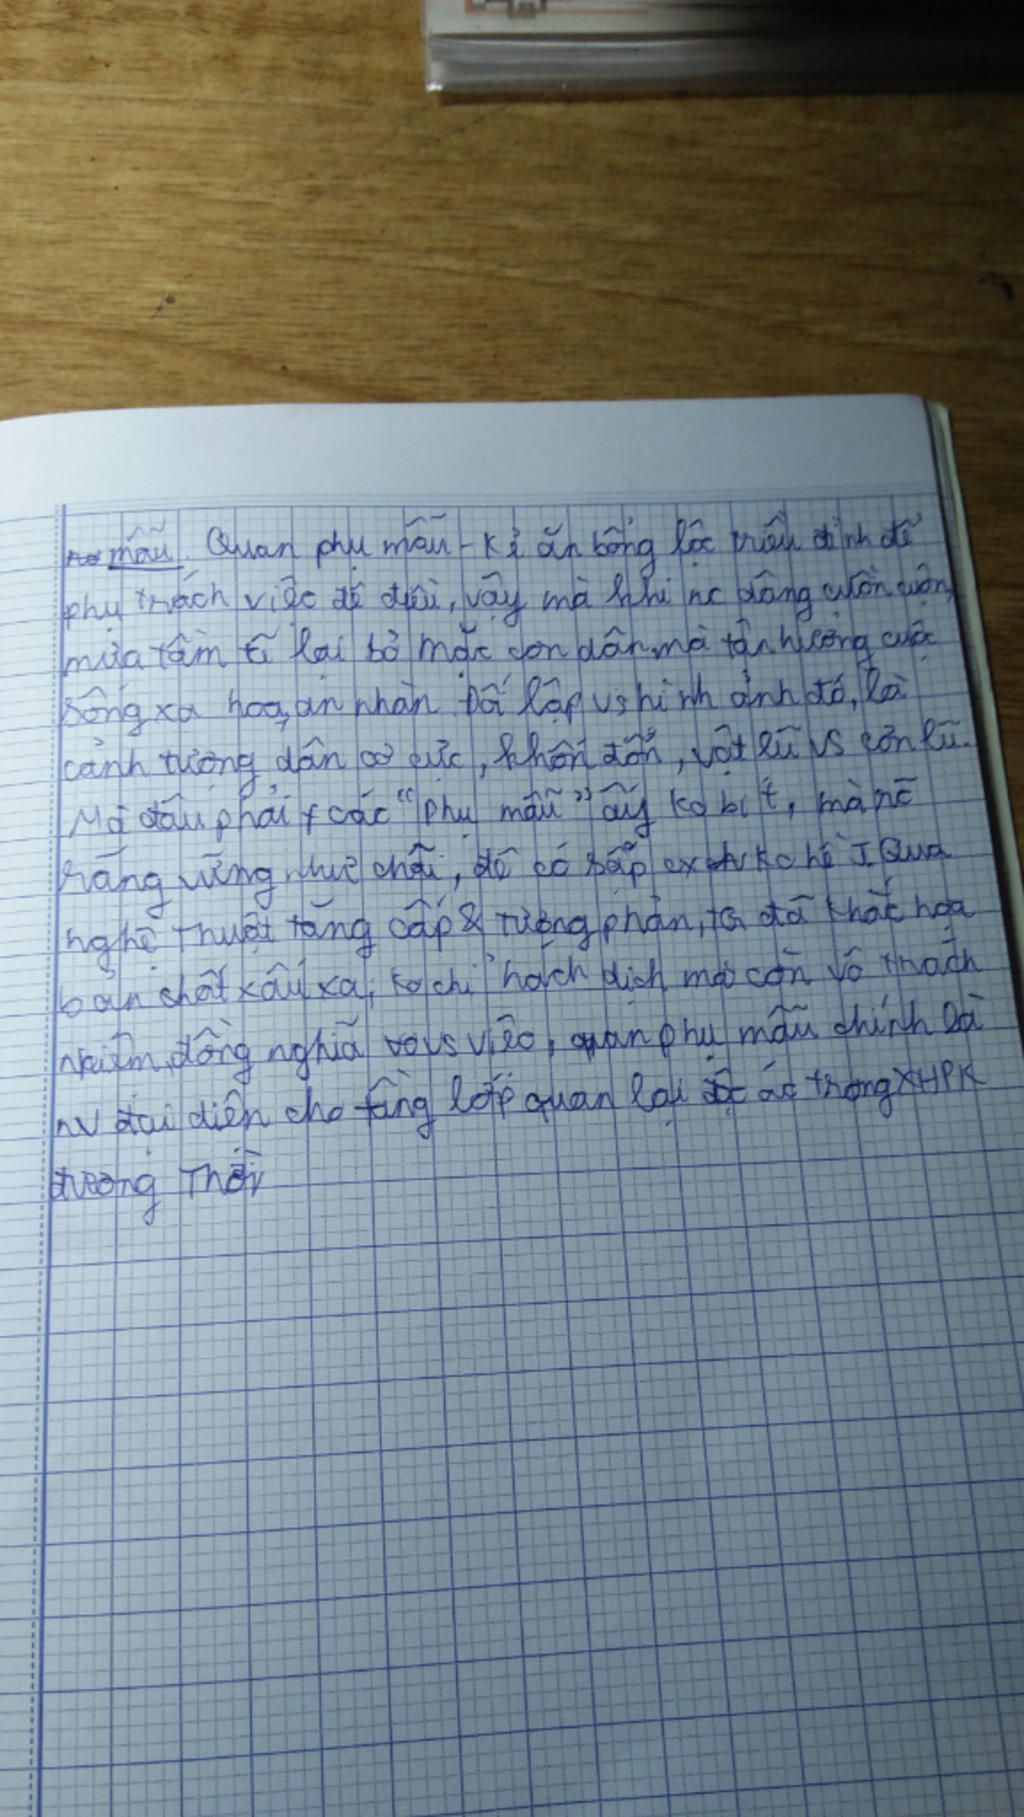 mẫu. Quan phụ mẫu - kẻ ăn bổng lộc triều đình để
phụ trách việc đê điều, vậy mà khi nc dâng cuồn cuộn,
mưa tầm tã lại bỏ mặc con dân mà tận hưởng cuộc
sống xa hoa, an nhàn. Đối lập vs hình ảnh đó, là
cảnh tượng dân cơ cực, khốn đốn, vật lũ vs cơn lũ.
Mà đâu phải các "phụ mẫu" ấy ko biết, mà nó
rằng vững như chãi, đê có sắp cx ko hề I Qua
nghệ thuật tăng cấp & tương phản, tg đã khắc họa
bản chất xấu xa, ko chỉ hách dịch mà còn vô trách
nhiệm, đồng nghĩa vs việc, quan phụ mẫu chính là
nv đại diện cho tầng lớp quan lại độc ác trong XHPK
đương thời